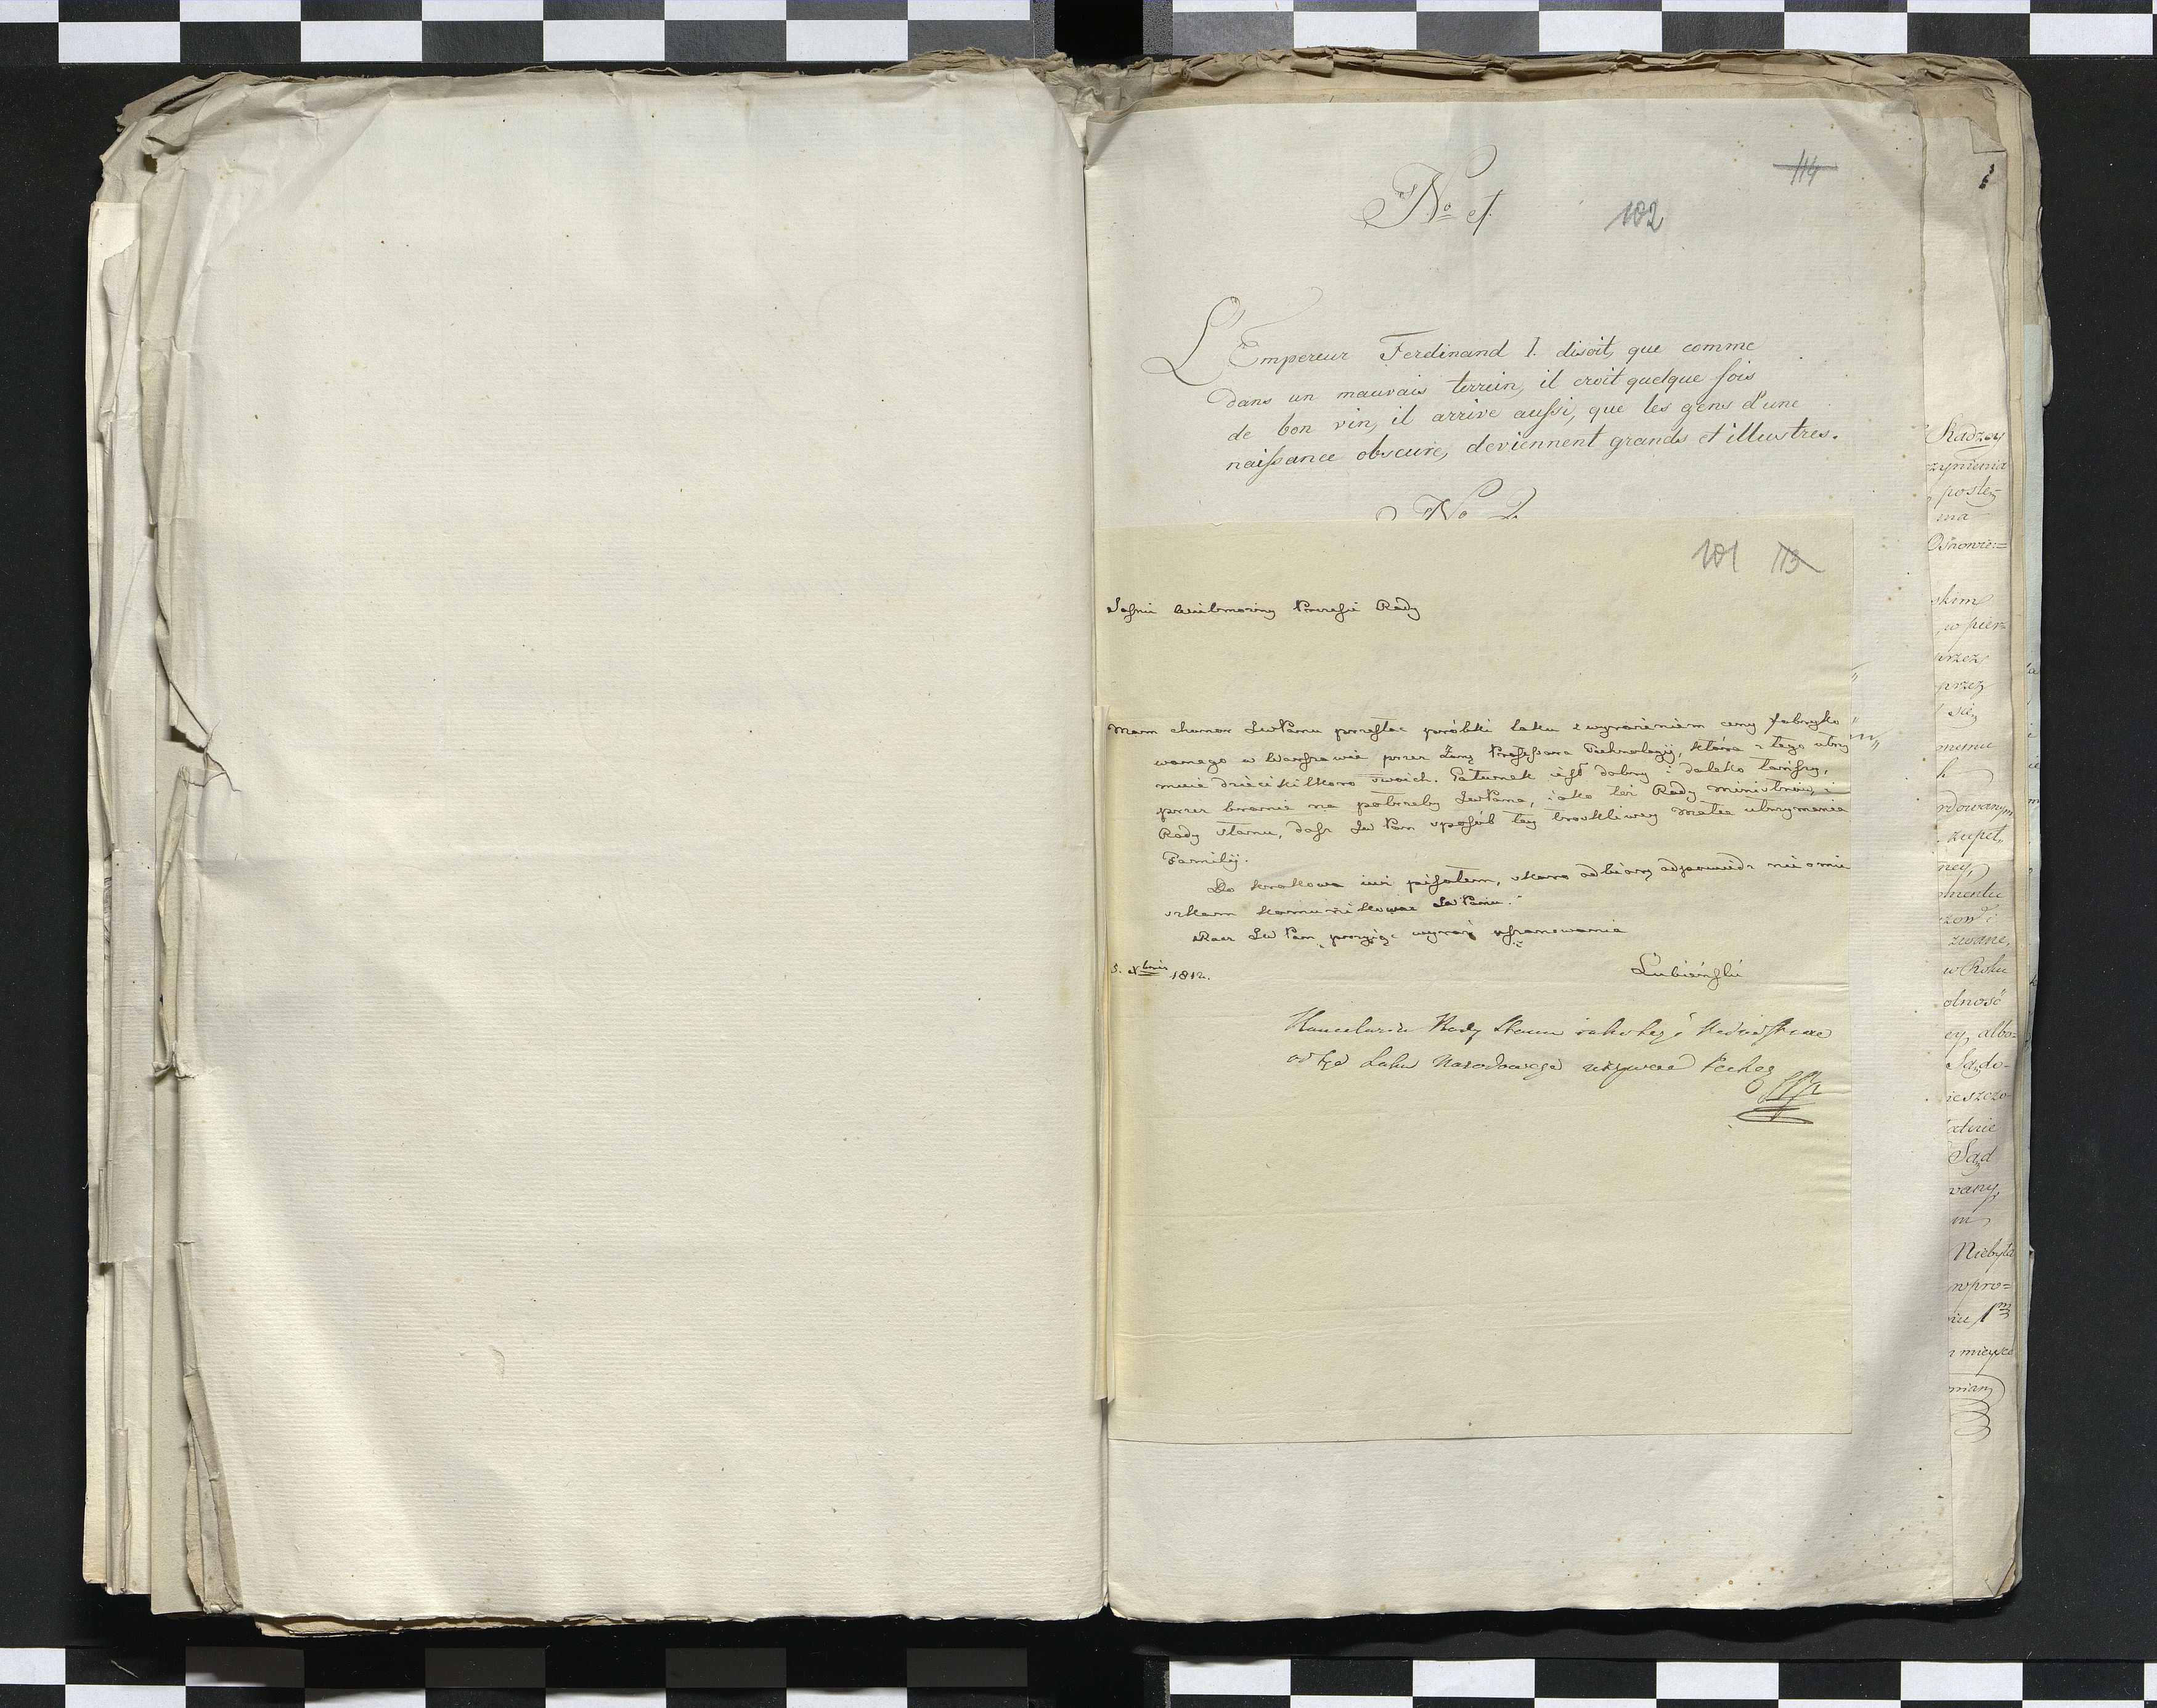 114
No 1.
102
L'Empereur Ferdinand I. disoit, que comme
dans un mauvais terrein, il croit quelque fois
de bon vin, il arrive aussi, que les gens d'une
naissance obscure, deviennent grands et illustres.
No 2.
101 113
Jaśnie Wielmożny Prezesie Rady
Mam chonor JWPanu przesłać próbki laku z wyrażeniem ceny fabryko
wanego w Warszawie przez Żonę Professora Technologij, która z tego utrzy
muie dzieci kilkoro swoich. Gatunek iest dobry i daleko tańszy,
przez branie na potrzeby JWPana, iako też Rady Ministrów, i
Rady Stanu, dasz JW Pan sposób tey troskliwey Matce utrzymania
Familij.
Do Krakowa iuż pisałem, skoro odbiorę odpowiedź nie omie
szkam komunikować JW Panu.
Racz JW Pan przyiąć wyraz uszanowania
5. Xbris 1812.
Łubieński
Kancelaria Rady Stanu
od tąd Laku Narodowego używać
Radzcy
czynienia
postę-
ma
Osnowie:=
skim
w pier=
przez
przez
nemu
rdowanym
zupeł„
ney,
zwane,
w Roku
olność
ey, albo=
Sądo-
ieszczo-
Sąd
wany,
m
Niebyła
w pro=
niu 1m
miejsca